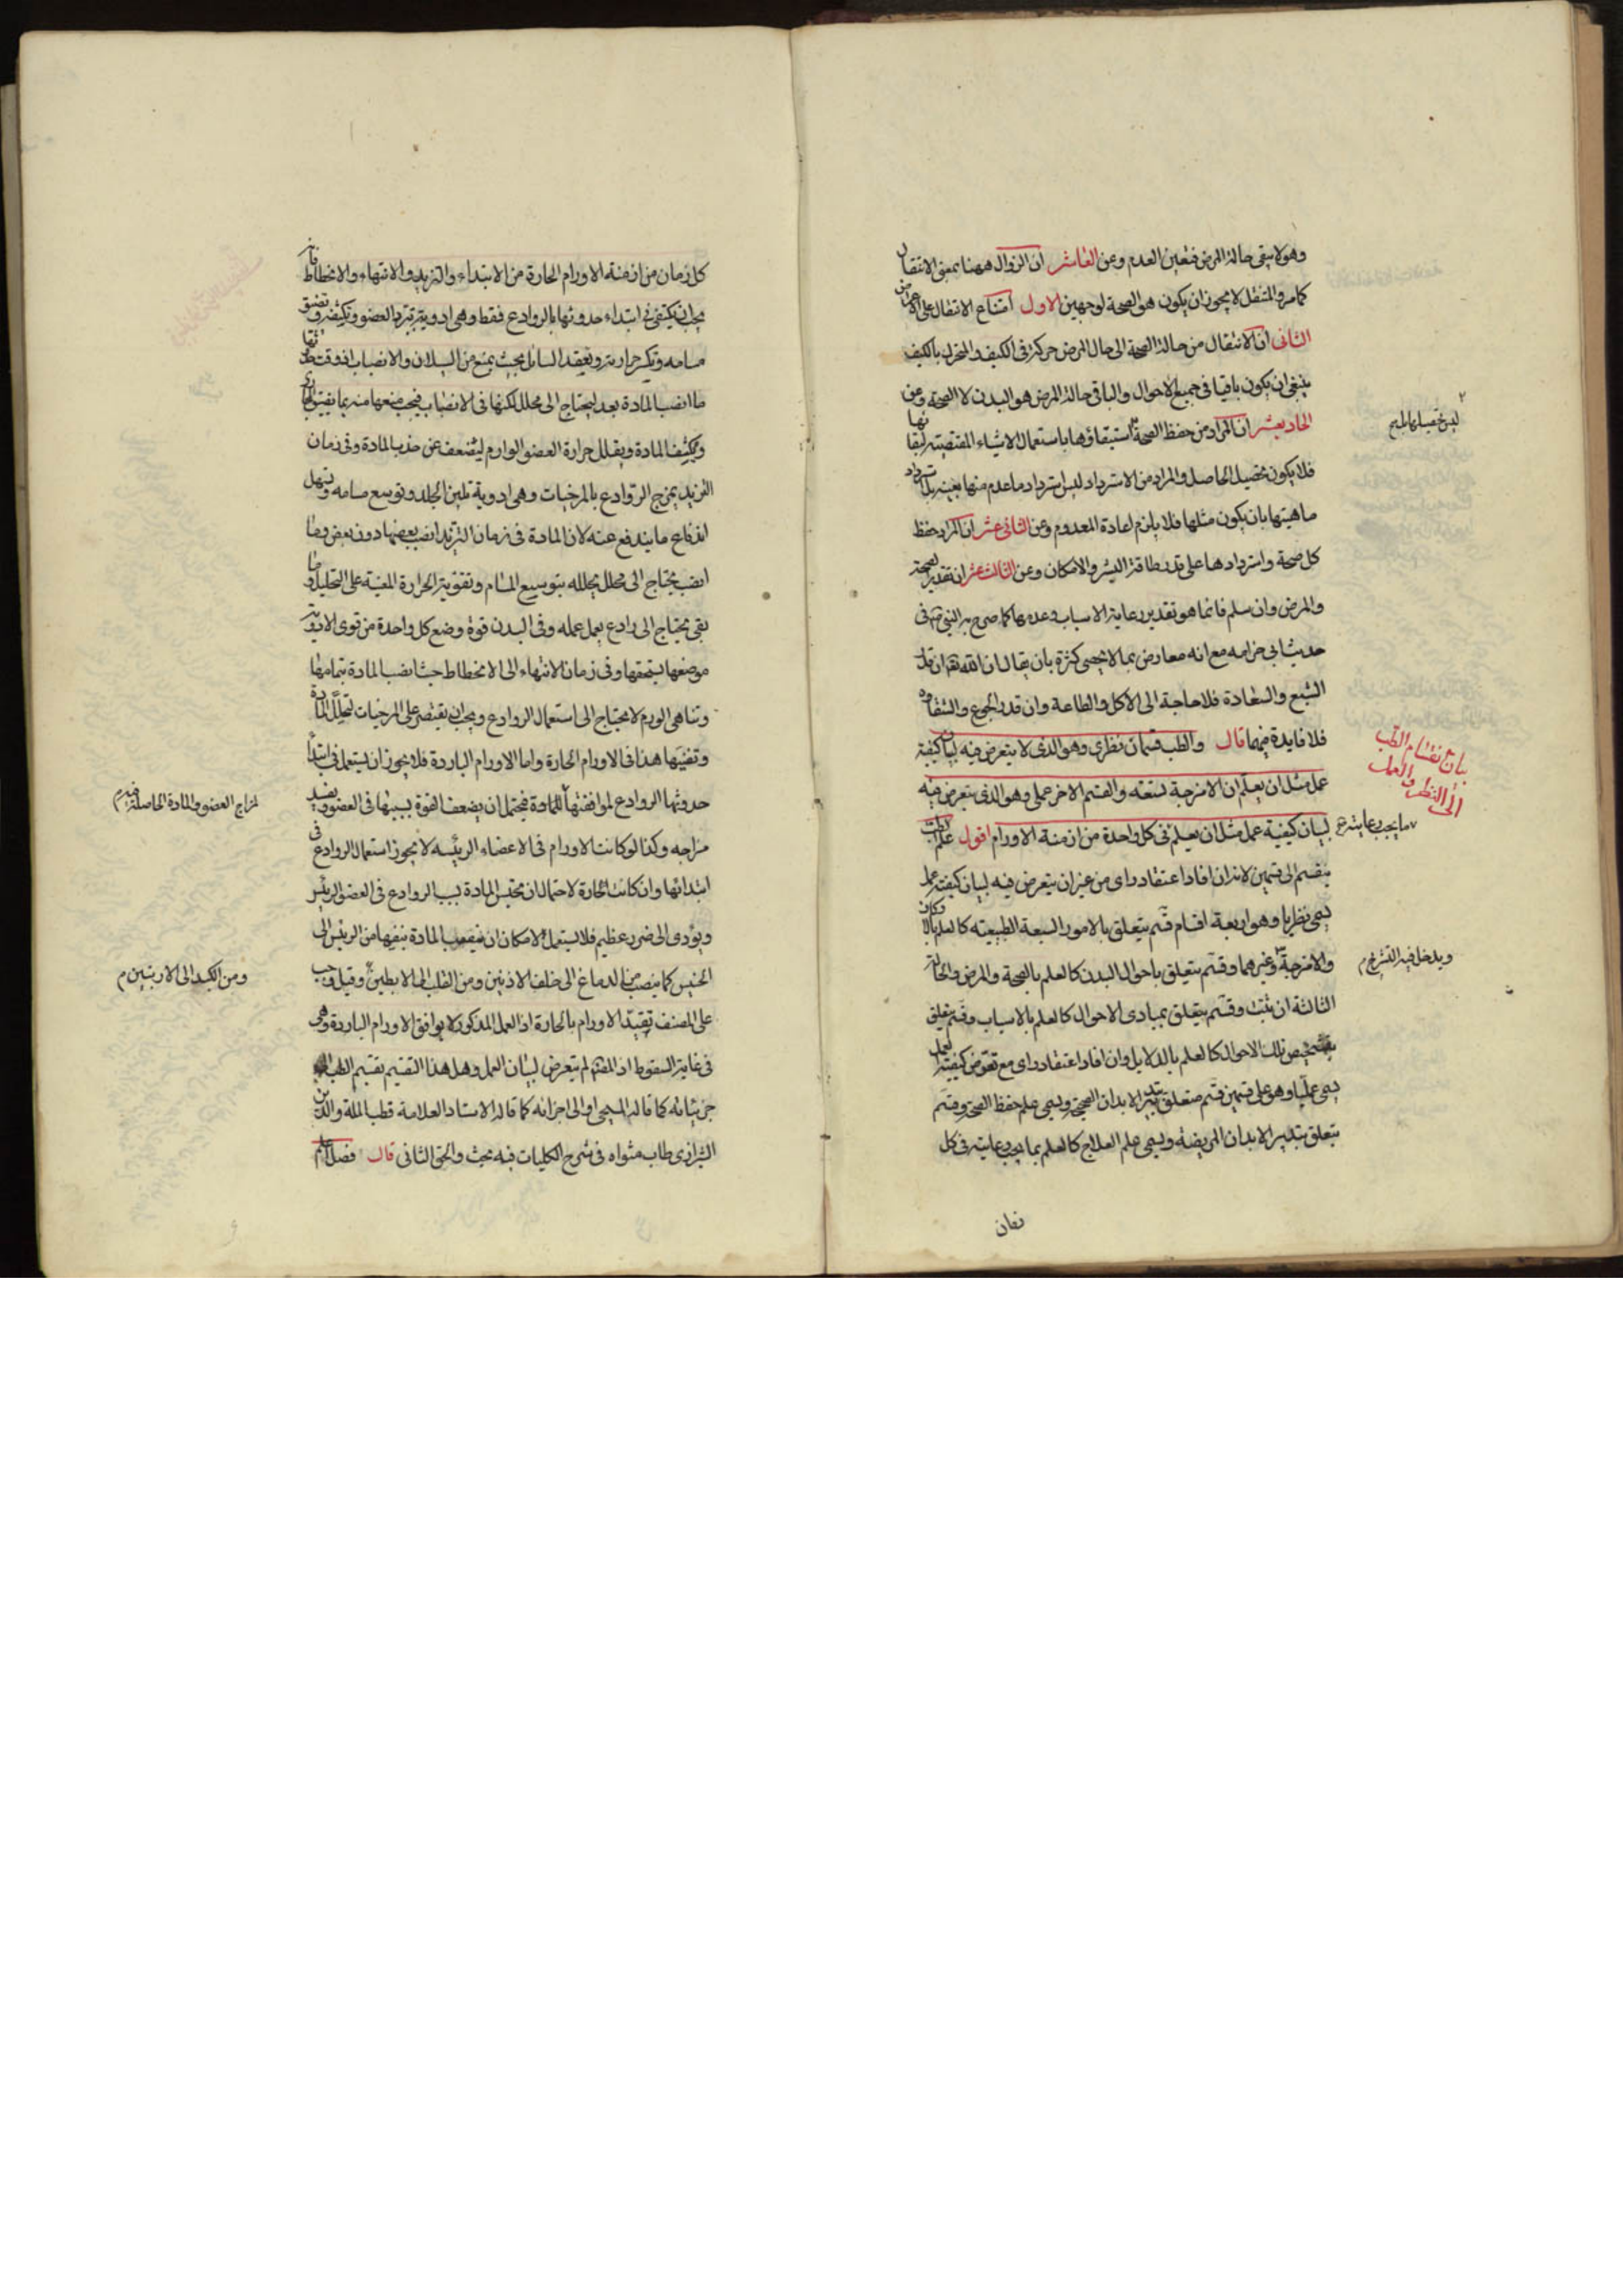 وهو لا يبقى حالة المرض فتعين العدم وعن العاشر ان الزوال ههنا بمعنى الانتقال
كما مر والمتنقل لا يجوز ان يكون هو الصحة لوجهين الاول امتناع الانتقال على الاعراض
الثانى ان الانتقال من حالة الصحة الى حال المرض حركة فى الكيف والمتحرك بالكيف
ينبغى ان يكون باقيا فى جميع الاحوال والباقى حالة المرض هو البدن لا الصحة وعن
الحاد يعشر ان المراد من حفظ الصحة استبقاؤها باستعمال الاشياء المقتضية لبقائها
ليس تحصيلها
فلا يكون تحصيل الحاصل والمراد من الاسترداد ليس استرداد ما عدم منها بعينه بل استرداد
ماهيتها بان يكون مثلها فلا يلزم اعادة المعدوم وعن الثانى عشر ان المراد حفظ
كل صحة واستردادها على قدر طاقة البشر والامكان وعن الثالث عشر ان تقدير الصحة
والمرض وان سلم فانما هو تقدير رعاية الاسباب وعدمها كما صرح به النبى فى
حديث ابى خزامه مع انه معارض بما لا يحصى كثرة بان يقال ان الله ان قدر
الشبع والسعادة فلا حاجة الى الاكل والطاعة وان قدر الجوع والشقاوة
فلا فايدة فيهما قال والطب قسمان نظرى وهو الذى لا يتعرض فيه لبيان كيفية
بيان انقسام الطب
الى النظرى والعملى
عمل مثل ان يعلم ان الامزجة تسعة والقسم الاخر عملى وهو الذى يتعرض فيه
لبيان كيفية عمل مثل ان يعلم فى كل واحدة من ازمنة الاورام اقول علم الطب
ما يجب رعايته
ينقسم الى قسمين لانه ان افاد اعتقاد راى من غير ان يتعرض فيه لبيان كيفية عمل
يسمى نظريا وهو اربعة اقسام قسم يتعلق بالامور السبعة الطبيعية كالعلم بالاركان
والامزجة وغيرهما وقسم يتعلق باحوال البدن كالعلم بالصحة والمرض والحالة
ويدخل فيه التشريح
الثالثة ان ثبتت وقسم يتعلق بمبادى الاحوال كالعلم بالاسباب وقسم يتعلق
بتشخيص تلك الاحوال كالعلم بالدلايل وان افاد اعتقاد راى مع تعرض كيفية العمل
يسمى عمليا وهو على قسمين قسم متعلق بتدبير الابدان الصحيحة ويسمى علم حفظ الصحة وقسم
يتعلق بتدبير الابدان المريضة ويسمى علم العلاج كالعلم بما يجب رعايته فى كل
كل زمان من ازمنة الاورام الحارة من الابتداء والتزيد والانتهاء والانحطاط فانه
يجب ان يكتفى فى ابتداء حدوثها بالروادع فقط وهى ادوية تبرد العضو وتكثفه وتضيق
مسامه وتكسر حرارته ويعقد السائل بحيث يمنع من السيلان والانصباب
ما انصب المادة بعد ليحتاج الى محلل لكنها فى الانصباب فيجب منعها منه بما يقوى
ويكثف المادة ويقلل حرارة العضو الوارم ليضعف عن جذب المادة وفى زمان
التزيد يمزج الروادع بالمرخيات وهى ادوية تلين الجلد وتوسع مسامه وتسهل
اندفاع ما يندفع عنه لان المادة فى زمان التزيد انصب بعضها دون بعض وما
انصب يحتاج الى محلل يحلله بتوسيع المسام وتقوية الحرارة المعينة على التحليل وما
بقى يحتاج الى رادع يعمل عمله وفى البدن قوة وضع كل واحدة من قوى الادوية
موضعها يستحقها وفى زمان الانتهاء الى الانحطاط حيث انصب المادة بتمامها
وتناهى الورم لا يحتاج الى استعمال الروادع ويجب ان يقتصر على المرخيات لتحلل المادة
وتفنيها هذا فى الاورام الحارة واما الاورام الباردة فلا يجوز ان يستعمل فى ابتداء
حدوثها الروادع لموافقتها للمادة فيحتمل ان يضعف القوة بسببها فى العضو ويفسد
لمزاج العضو والمادة الحاصلة فيه م
مزاجه وكذا لو كانت الاورام فى الاعضاء الرئيسه لا يجوز استعمال الروادع فى
ابتدائها وان كانت الحارة لاحتمال ان تحتبس المادة بسبب الروادع فى العضو الرئيس
ويؤدى الى ضرر عظيم فلا يستعمل لامكان ان ينصب المادة بنفسها من الرئيس الى
الخسيس كما ينصب من الدماغ الى خلف الاذنين ومن القلب الى الابطين وقيل وجب
ومن الكبد الى الاربيتين م
على المصنف تقييد الاورام بالحارة اذ العمل المذكور لا يوافق الاورام الباردة وهى
فى غاية السقوط اذ المصنف لم يتعرض لبيان العمل وهل هذا التقسيم تقسيم الطب الى
جزئياته كما قاله المسيحى او الى اجزائه كما قاله الاستاد العلامة قطب الملة والدين
الشيرازى طاب مثواه فى شرح الكليات فيه بحث والحق الثانى قال فصل